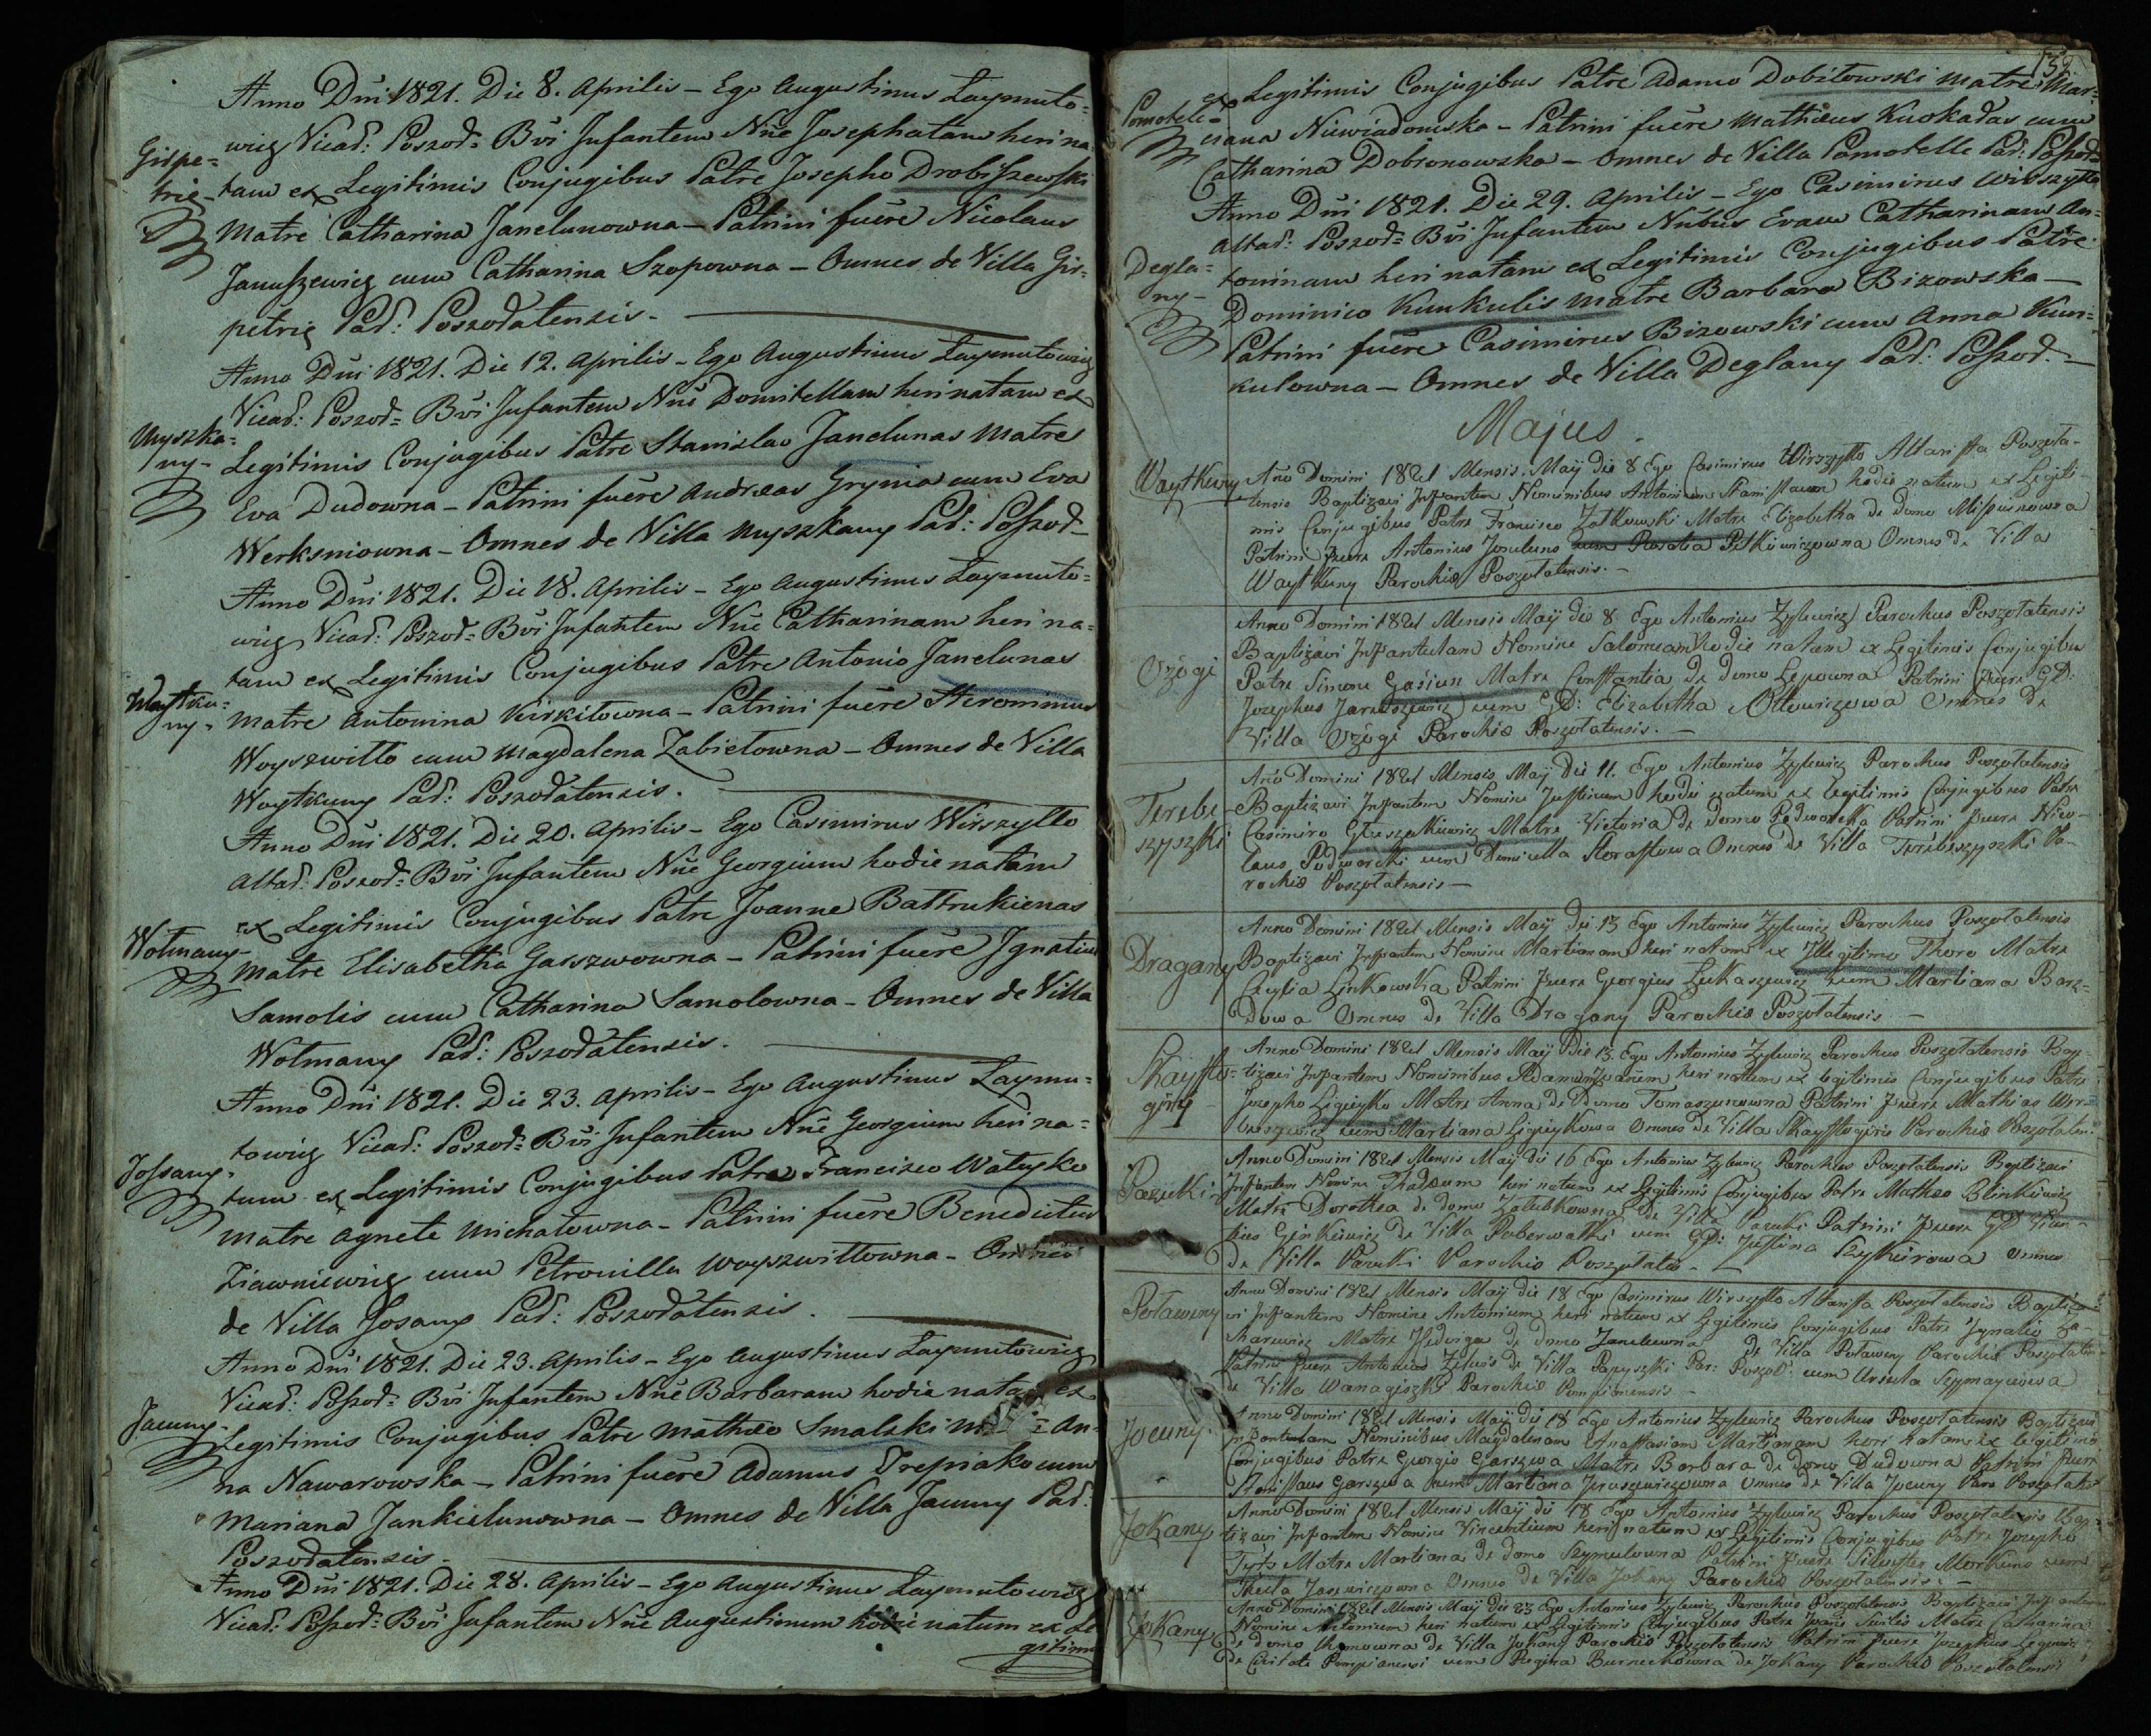 Anno Dni 1821. Die 8. Aprilis – Ego Augustinus Laymuto=
wicz Vicad: Poszod= Bvi Infantem Nne Josephatam heri na
Girpe=
trie – tam ex Legitimis Conjugibus Patre Josepho Drobiszewski
Matre Catharina Janelunowna – Patrini fuêre Nicolaus
Januszewicz cum Catharina Szopowna – Omnes de Villa Gir=
petrie Pad: Poszodatensis. –
Anno Dni 1821. Die 12. Aprilis – Ego Augustinus Laymutowicz
Vicad: Poszod= Bvi Infantem Nne Domitellam heri natam ex
Myszka=
ny – Legitimis Conjugibus Patre Stanislao Janelunas Matre
Eva Dudowna – Patrini fuêre Andreas Grynia cum Eva
Werksniowna – Omnes de Villa Myszkany Pad: Poszod –
Anno Dni 1821. Die 18. Aprilis – Ego Augustinus Laymuto=
wicz Vicad: Poszod= Bvi Infantem Nne Catharinam heri na=
tam ex Legitimis Conjugibus Patre Antonio Janelunas
Waytku=
ny – Matre Antonina Kirkitowna – Patrini fuêre Hieronimus
Woyszwitto cum Magdalena Zabietowna – Omnes de Villa
Waytkuny Pad: Poszodatensis.
Anno Dni 1821. Die 20. Aprilis – Ego Casimirus Wirszyllo
Altad: Poszod= Bvi Infantem Nne Georgium hodie natum
ex Legitimis Conjugibus Patre Joanne Battrukienas
Wotmany – Matre Elisabetha Gasszwowna – Patrini fuêre Ignatius
Samolis cum Catharina Samolowna – Omnes de Villa
Wotmany Pad: Poszodatensis.
Anno Dni 1821. Die 23. Aprilis – Ego Augustinus Laymu=
towicz Vicad: Poszod= Bvi Infantem Nne Georgium heri na=
Jossany – tum ex Legitimis Conjugibus Patre Francisco Watysko
Matre Agnete Michatowna – Patrini fuêre Benedictus
Ziawniewicz cum Petronilla Woyszwittowna – Omnes
de Villa Josany Pad: Poszodatensis.
Anno Dni 1821. Die 23. Aprilis – Ego Augustinus Laymutowicz
Vicad: Poszod= Bvi Infantem Nne Barbaram hodie natam ex
Jacuny – Legitimis Conjugibus Patre Mathaeo Smalski An=
na Nawarowska – Patrini fuêre Adamus Trepiako cum
Mariana Jankielunowna – Omnes de Villa Jacuny Pad:
Poszodatensis.
Anno Dni 1821. Die 28. Aprilis – Ego Augustinus Laymutowicz
Vicad: Poszod= Bvi Infantem Nne Augustinum natum ex Le
gitimis
139
ex Legitimis Conjugibus Patre Adamo Dobitowski Matre Mar=
Pomotele – Niewiadomska – Patrini fuêre Mathaeus Kuokadas cum
Catharina Dobronowska – Omnes de Villa Pomotelle Pad: Poszod=
Anno Dni 1821. Die 29. Aprilis – Ego Casimirus Wirszyllo
Altad: Poszod= Bvi Infantem Nnbus Evam Catharinam An=
Degla=
ny – toninam heri natam ex Legitimis Conjugibus Patre
Dominico Kunkulis Matre Barbara Bizowska –
Patrini fuêre Casimirus Bizowski cum Anna Kun=
kulowna – Omnes de Villa Deglany Pad: Poszod. –
Majus.
Waytkuny Ano Domini 1821 Mensis Maÿ die 8 Ego Casimirus Wirszyllo Altarista Poszoła-
tensis Baptizavi Infantem Nominibus Antonium Stanislaum hodie natum ex Legiti-
mis Conjugibus Patre Francisco Zatkowski Matre Elizabetha de domo
Patrini fuere Antonius Janelunas cum Rosalia Petkiewiczowna Omnes de Villa
Waytkuny Parochiæ Poszołatensis. –
Anno Domini 1821 Mensis Maÿ die 8 Ego Antonius Zylewicz Parochus Poszołatensis
Ożogi Baptizavi Infantulam Nomine Salomeam hodie natam ex Legitimis Conjugibus
Patre Simone Gasiun Matre Constantia de domo Lepowna Patrini fuere GD:
Josephus Jaruszewicz cum GD: Elizabetha Ottowiczowa Omnes de
Villa Ożogi Parochiæ Poszołatensis. –
Ano Domini 1821 Mensis Maÿ die 11. Ego Antonius Zylewicz Parochus Poszołatensis
Terebe
szyszki Baptizavi Infantem Nomine Justinum hodie natum ex Legitimis Conjugibus Patre
Casimiro Gleszakiewicz Matre Victoria de domo Podworska Patrini fuere Nico-
laus Podworski cum Domicella Omnes de Villa Terebeszyszki Pa-
rochiæ Poszołatensis –
Anno Domini 1821 Mensis Maÿ die 13 Ego Antonius Zylewicz Parochus Poszołatensis
Dragany Baptizavi Infantem Nomine Martianam heri natam ex Illegitimo Thoro Matre
Cecylia Linkowska Patrini fuere Georgius Lukaszewicz cum Martiana Barz-
dowa Omnes de Villa Dragany Parochiæ Poszołatensis –
Anno Domini 1821 Mensis Maÿ Die 13. Ego Antonius Zylewicz Parochus Poszołatensis Bap-
Skaysto=
giry tizavi Infantem Nominibus Adamum heri natum ex Legitimis Conjugibus Patre
Josepho Ligieyko Matre Anna de Domo Tomaszunowna Patrini fuere Mathias Wer-
cum Martiana Ligieykowa Omnes de Villa Skaystogiris Parochiæ Poszołaten:
Anno Domini 1821 Mensis Maÿ die 16 Ego Antonius Zylewicz Parochus Poszołatensis Baptizavi
Pazulki Infantem Nomine Thadæum heri natum ex Legitimis Conjugibus Patre Mathæo Blinkiewicz
Matre Dorothea de domo Zatubkowna de Villa Patrini fuere GD
Ginkiewicz de Villa Poberwałki cum GD: Justina Omnes
de Villa Parochiæ Poszołaten –
Anno Domini 1821 Mensis Maÿ die 18 Ego Casimirus Wirszyllo Altarista Poszołatensis Baptiza-
Poławeny vi Infantem Nomine Antonium heri natum ex Legitimis Conjugibus Patre Ignatio Za-
charewicz Matre Hedviga de domo Janelewna de Villa Poławeny Parochiæ Poszołaten
Patrini fuere Antonius de Villa Papyszki Par: Poszoł: cum Ursula Szymaycowa
de Villa Wanagiszki Parochiæ Pompianensis –
Jocuny Anno Domini 1821 Mensis Maÿ die 18 Ego Antonius Zylewicz Parochus Poszołatensis Baptizavi
Infantulam Nominibus Magdalenam Anastasiam Martianam heri natam ex Legitimis
Conjugibus Patre Georgio Garszwa Matre Barbara de domo Dudowna Patrini fuere
Stanislaus Garszwa cum Martiana Omnes de Villa Jocuny Paro Poszołaten
Anno Domini 1821 Mensis Maÿ die 18 Ego Antonius Zylewicz Parochus Poszołatensis Bap-
Jokany tizavi Infantem Nomine Vincentium heri natum ex Legitimis Conjugibus Patre Josepho
Matre Martiana de domo Szymulowna Patrini fuere Silvester Morkuns cum
Thecla Jasewiczowna Omnes de Villa Jokany Parochiæ Poszołatensis. –
Anno Domini 1821 Mensis Maÿ die 23 Ego Antonius Zylewicz Parochus Poszołatensis Baptizavi Infantem
Jokany Nomine Antonium heri natum ex Legitimis Conjugibus Patre Matre Catharina
de domo de Villa Jokany Parochiæ Poszołatensis Patrini fuere Josephus
de Civitate Pompianensi cum Regina Burneckowna de Jokany Parochiæ Poszołatensis